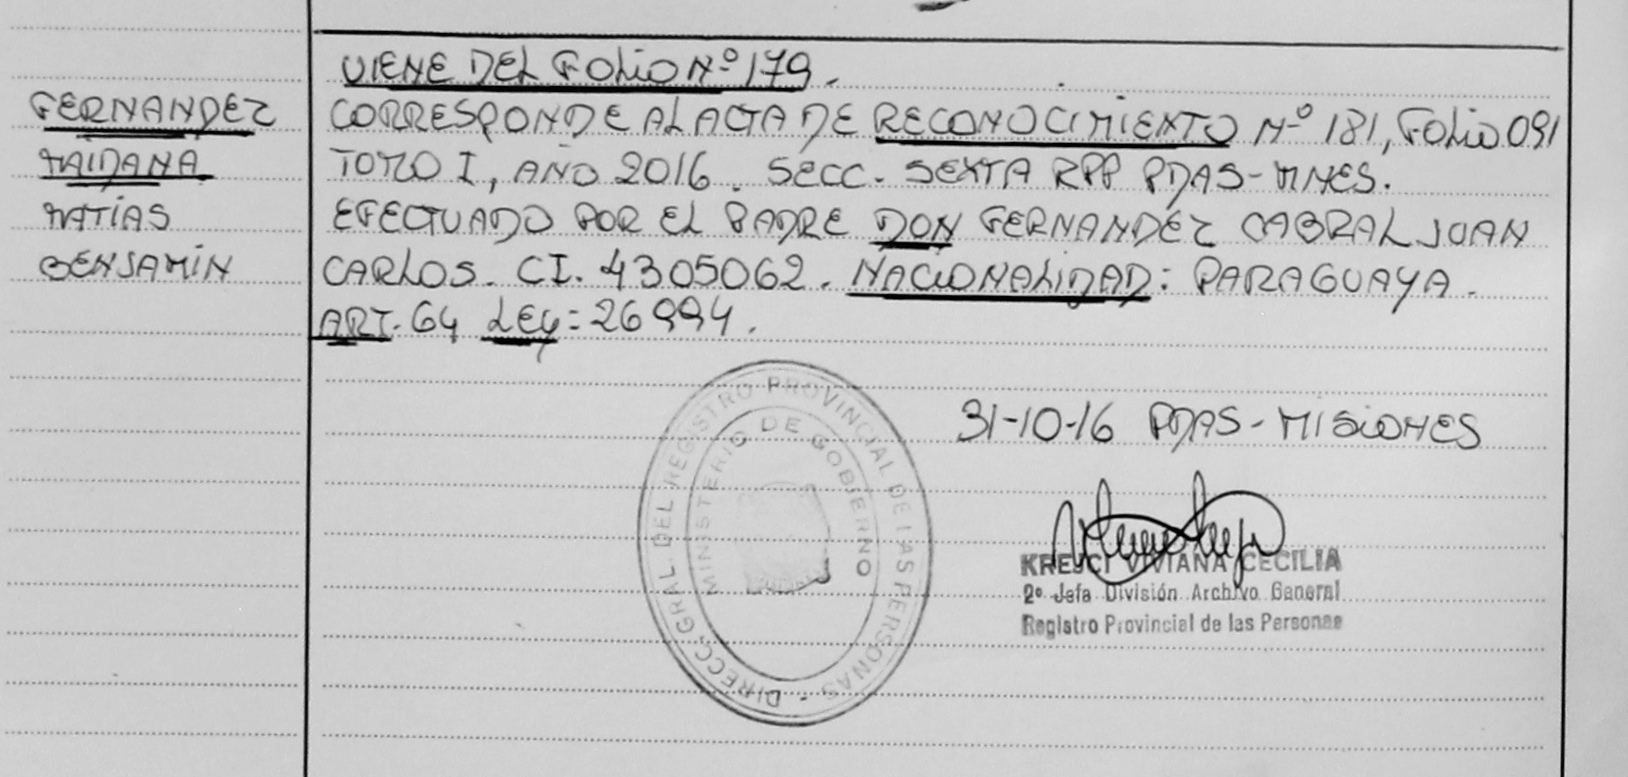 VIENE DEL FOLIO Nº 179.
FERNANDEZ
MAIDANA
MATÍAS
BENJAMÍN
CORRESPONDE AL ACTA DE RECONOCIMIENTO Nº 181, FOLIO 091
TOMO I, AÑO 2016. SECC. SEXTA RPP PDAS-MNES.
EFECTUADO POR EL PADRE DON FERNANDEZ CABRAL JUAN
CARLOS. CI. 4305062. NACIONALIDAD: PARAGUAYA.
ART. 64 LEY: 26994.
31-10-16 PDAS-MISIONES
DIRECC. GRAL. DEL REGISTRO PROVINCIAL DE LAS PERSONAS -
MINISTERIO DE GOBIERNO
KREJCI VIVIANA CECILIA
2º Jefa División Archivo General
Registro Provincial de las Personas